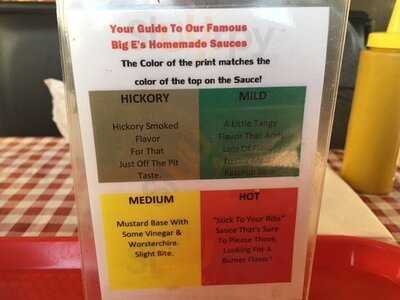 Your Guide To Our Famous
Big E's Homemade Sauces
The Color of the print matches the
color of the top on the Sauce!
HICKORY
Hickory Smoked
Flavor
For That
Just Off The Pit
Taste.
MILD
A Little Tangy
Flavor That Adds
Lots Of Flavor
MEDIUM
Mustard Base With
Some Vinegar &
Worsterchire.
Slight Bite.
HOT
"Stick To Your Ribs"
Sauce That's Sure
To Please Those
Looking For A
Burner Flavor"